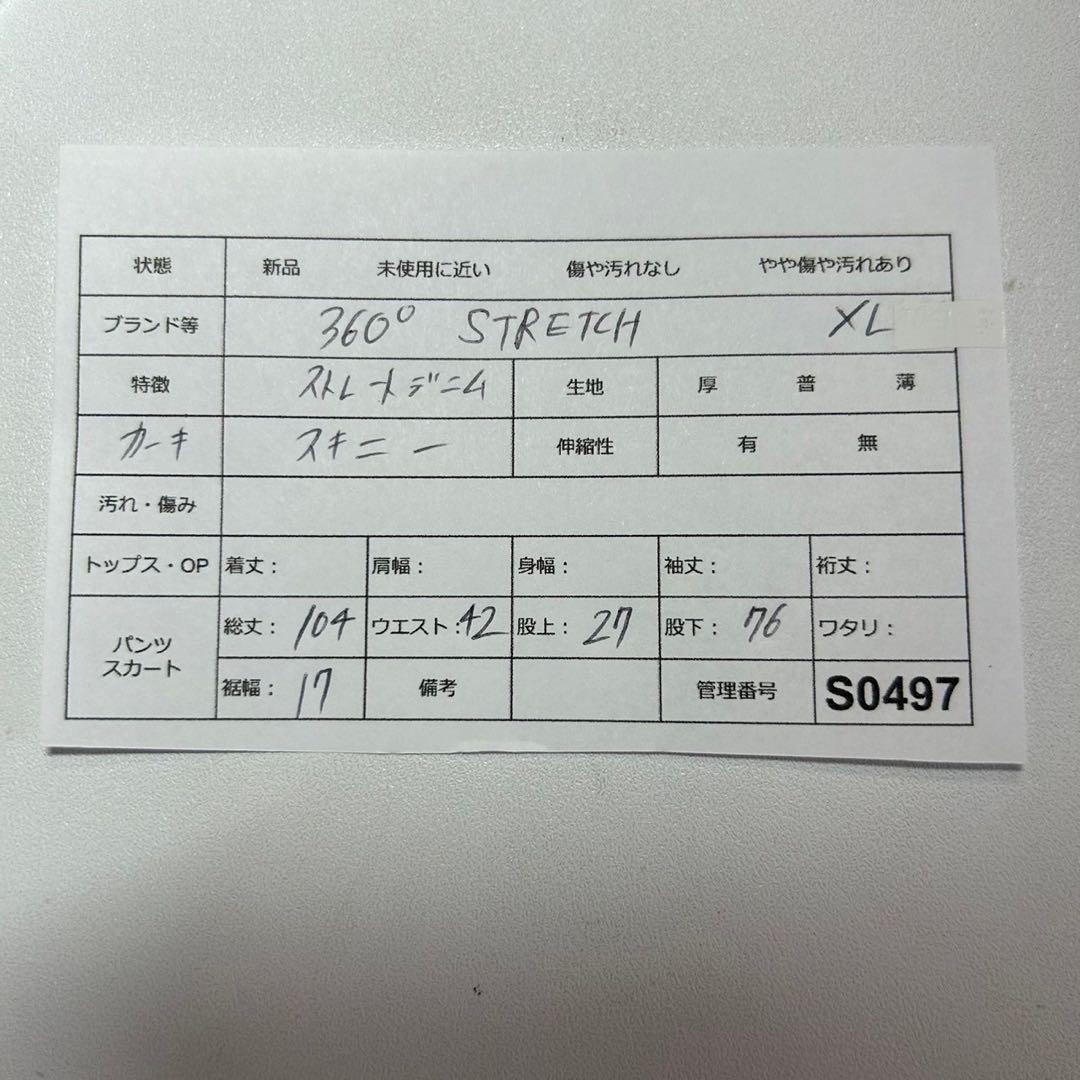 状態 新品 未使用に近い 傷や汚れなし やや傷や汚れあり
ブランド等 360° STRETCH XL
特徴 ストレートデニム 生地 厚 普 薄
カーキ スキニー 伸縮性 有 無
汚れ・傷み
トップス・OP 着丈: 肩幅: 身幅: 袖丈: 裄丈:
パンツ スカート 総丈: 104 ウエスト: 42 股上: 27 股下: 76 ワタリ:
裾幅: 17 備考 管理番号 S0497